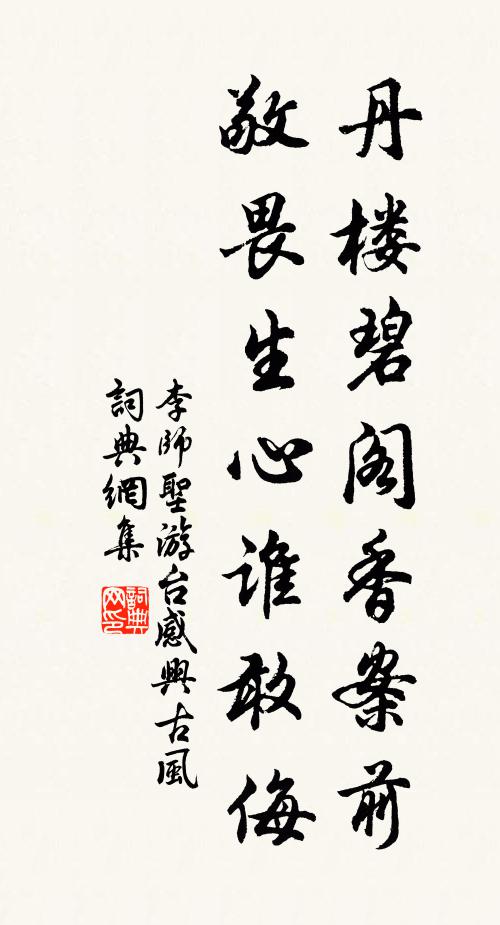 丹楼碧阁香案前
敬畏生心谁敢侮
李师聖游台感興古風
詞典網集
詞典网印